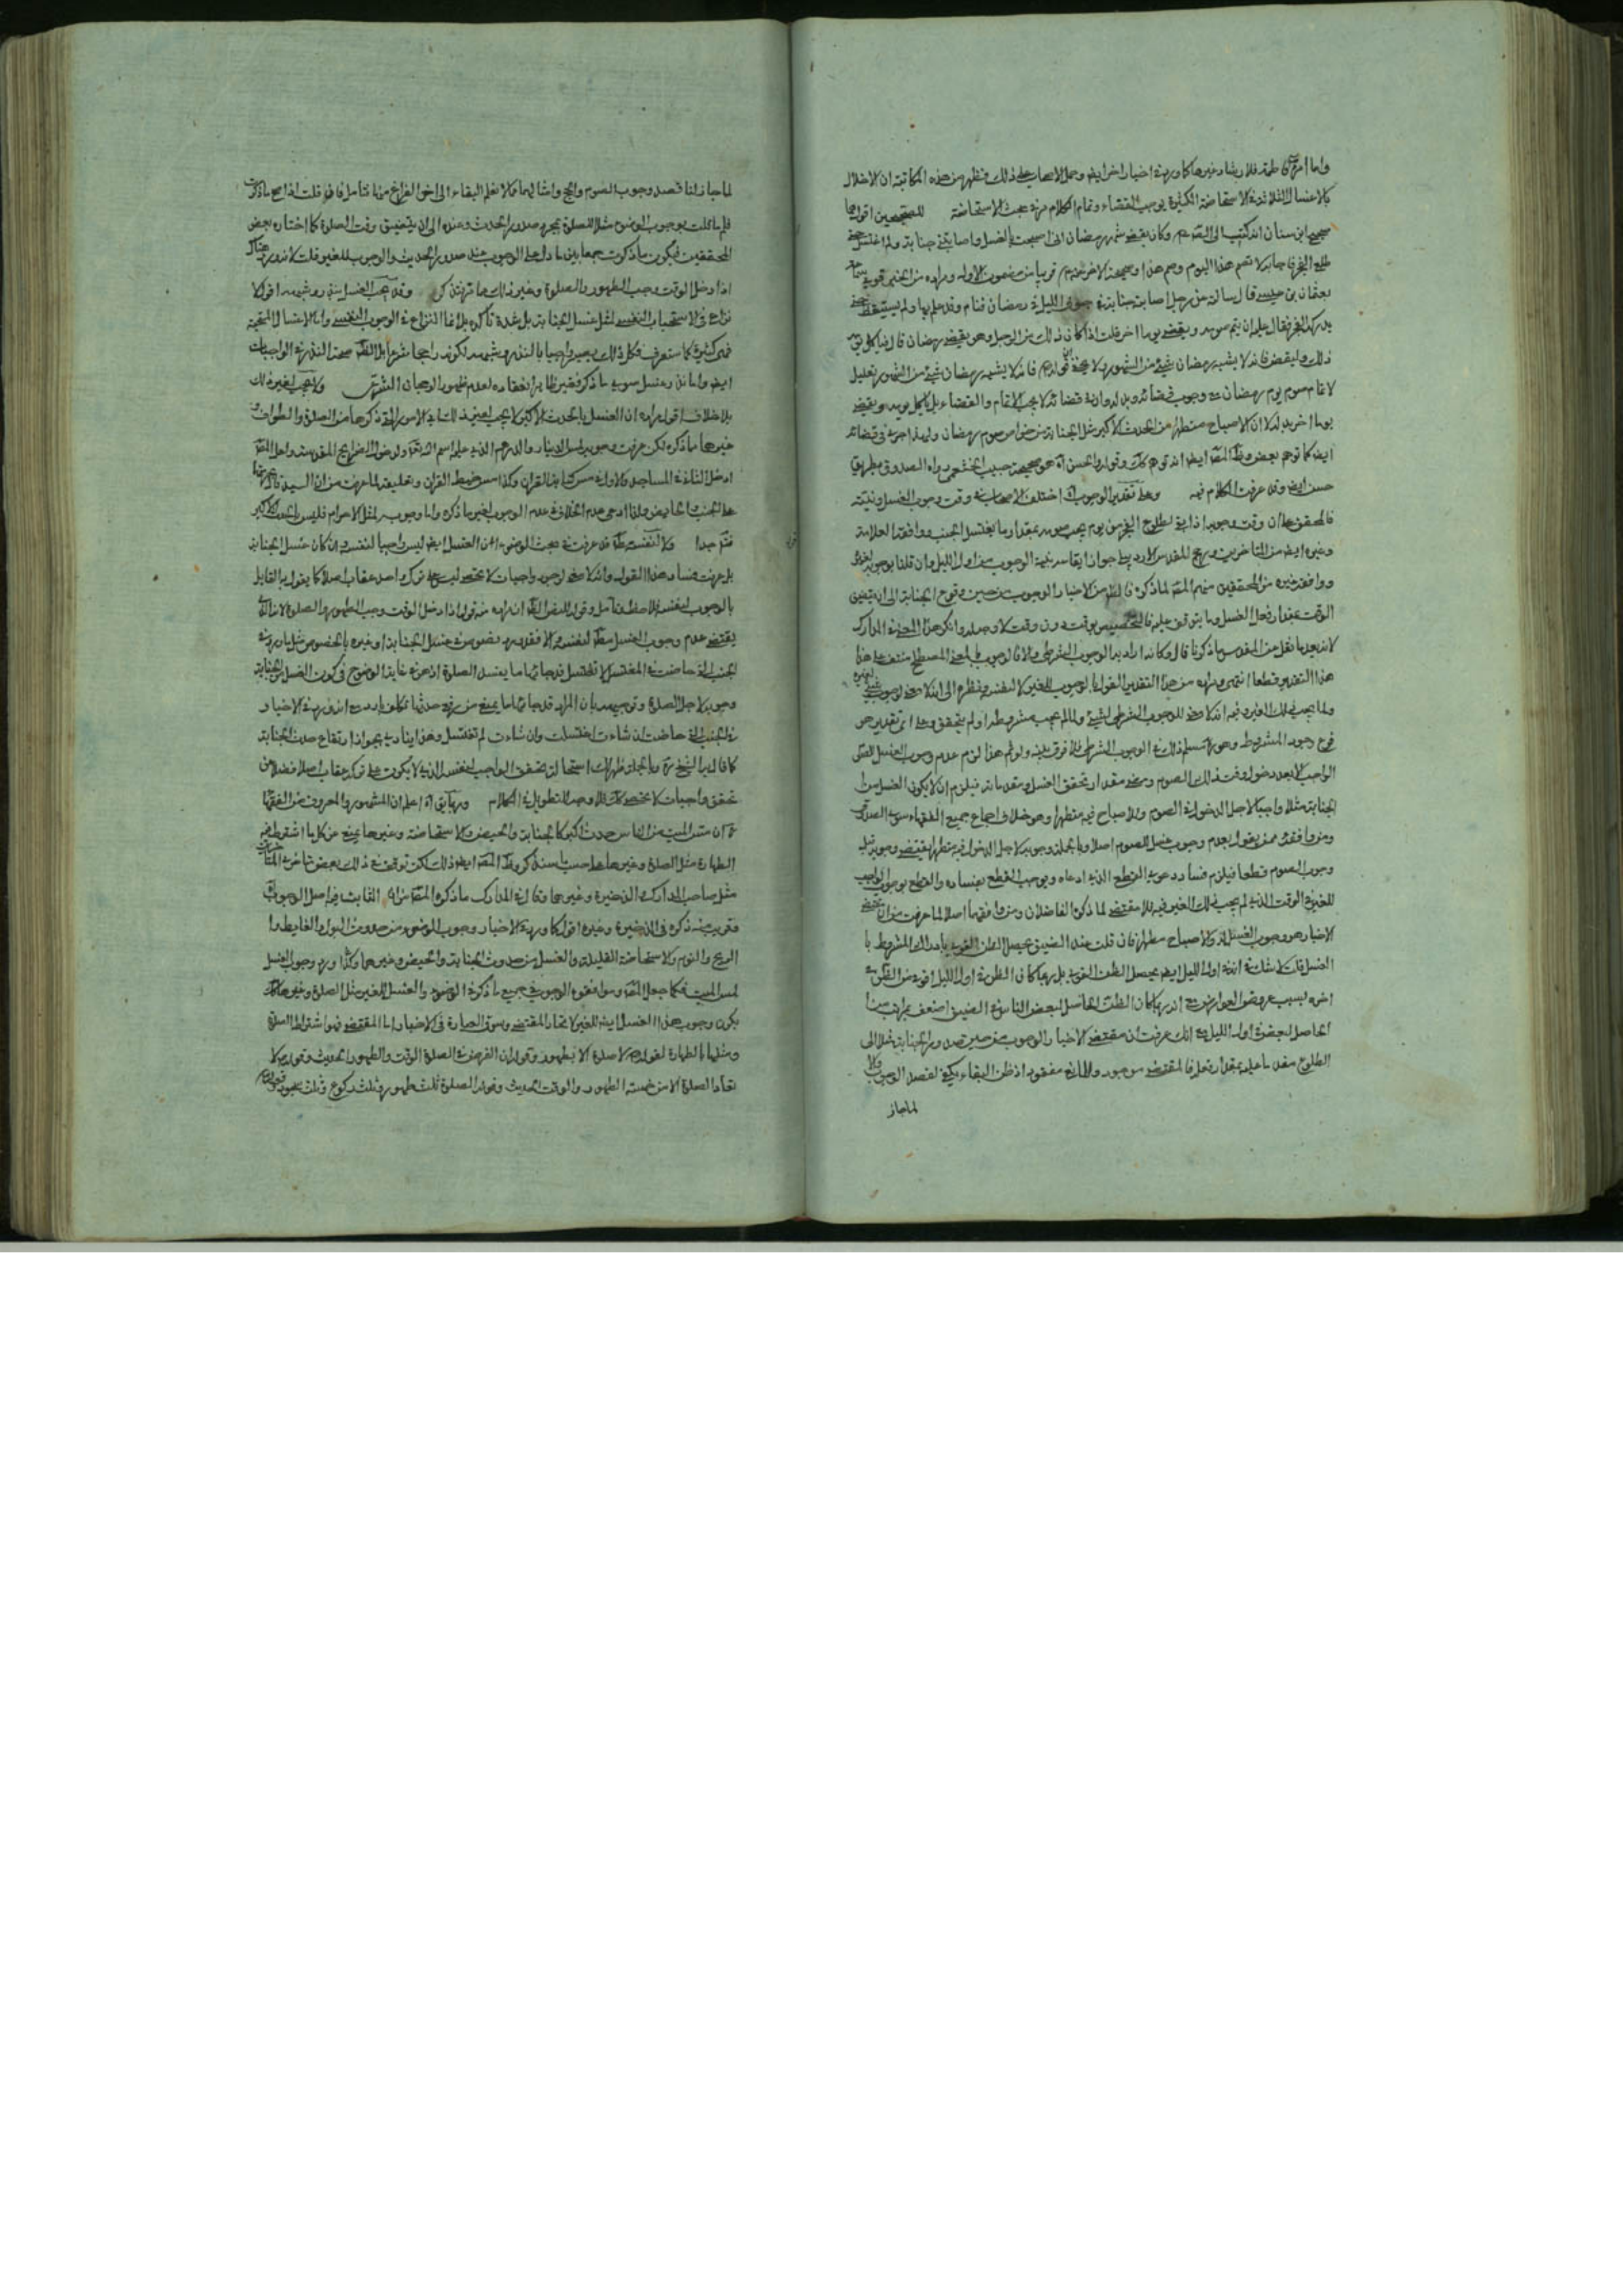 واما امره فاطمة فلارشاد غيرها كما ورد في اخبار اخر ايضا وحمل الاصحاب على ذلك فيظهر من هذه المكاتبة ان الاخلال
بالاغسال الثلاثة في الاستحاضة الكثيرة يوجب القضاء وتمام الكلام مر في بحث الاستحاضة للصحيحين اقول هما
صحيح ابن سنان انه كتب الى وكان يقضي شهر رمضان اني اصبحت بالغسل واصابتني جنابة ولم اغتسل حتى
طلع الفجر فاجابه لا تصم هذا اليوم وصم غدا وصحيحه الاخر قريبا من مضمون الاول ومراده من
بعثمان بن عيسى قال سالته عن رجل اصابته جنابة في جوف الليل في رمضان فنام وقد علم بها ولم يستيقظ حتى
يدركه الفجر فقال عليه ان يتم صومه ويقضي يوما اخر قلت اذا كان ذلك من الرجل وهو يقضي رمضان قال فلياكل يومه
ذلك وليقض فانه لا يشبه رمضان شيء من الشهور ولا يخفى ان قوله فانه لا يشبه رمضان شيء من الشهور تعليل
لاتمام صوم يوم رمضان مع وجوب قضائه وبدله وان في قضائه لا يجب الاتمام والقضاء بل ياكل يومه ويقضي
يوما اخر بدله لا ان الاصباح متطهرا من الحدث الاكبر مثل الجنابة من خواص صوم رمضان ولهذا اجري في قضائه
ايضا كما توهم بعض انه توهم كذلك وقوله والحسن اه هو صحيحة حبيب الخثعمي رواه الصدوق بطريق
حسن ايضا وقد عرفت الكلام فيه وعلى تقدير الوجوب اه اختلف الاصحاب في وقت وجوب الغسل ونيته
فالمحقق على ان وقت وجوبه اذا بقي لطلوع الفجر من يوم يجب صومه بمقدار ما يغتسل الجنب ووافقه العلامة
وغيره ايضا من المتاخرين ورجح المقدس الاردبيلي جواز ايقاعه بنية الوجوب من اول الليل وان قلنا بوجوبه لغيره
ووافقه غيره من المحققين منهم المصنف لما ذكره فالظاهر من الاخبار الوجوب من حين وقوع الجنابة الى ان يتضيق
الوقت بمقدار فعل الغسل وما يتوقف عليه فالتخصيص بوقت دون وقت لا وجه له وانكر هذا المعنى في المدارك
لانه بعد ما نقل عن المقدس ما ذكرنا قال وكانه اراد به الوجوب الشرطي والا فالوجوب بالمعنى المصطلح منتف على هذا
هذا التقدير قطعا انتهى ومراده من هذا التقدير القول بالوجوب للغير لا لنفسه ونظره الى انه لا معنى لوجوب شيء لغيره
ولما يجب ذلك الغير وفيه انه لا معنى للوجوب الشرطي لشيء ولما لم يجب مشروطه او لم يتحقق وعلى اي تقدير هو
فرع وجود المشروط وهو سلم ذلك في الوجوب الشرطي فلا فرق بينه ولو تم هذا لزم عدم وجوب الغسل للصوم
الواجب الا بعد دخول وقت ذلك الصوم ومضي مقدار تحقق الغسل ومقدماته فيلزم ان لا يكون الغسل من
الجنابة مثلا واجبا لاجل الدخول في الصوم والاصباح فيه متطهرا وهو خلاف اجماع جميع الفقهاء سوى الصدوق
ومن وافقه ممن يقول بعدم وجوب غسل للصوم اصلا وبالجملة وجوبه لاجل الدخول فيه متطهرا يقتضي وجوبه قبل
وجوب الصوم قطعا فيلزم فساد دعوى القطع الذي ادعاه ويوجب القطع بفساده والقطع بوجوب الواجب
للغير في الوقت الذي لم يجب ذلك الغير فيه للمقتضي لما ذكره الفاضلان ومن وافقهما اصلا لما عرفت من ان مقتضى
الاخبار هو وجوب الغسل له والاصباح متطهرا فان قلت عند الضيق يحصل الظن القوي بادراك المشروط با
الغسل قلت لا شك في انه في اول الليل ايضا يحصل الظن القوي بل ربما كان الظن في اول الليل اقوى من الظن في
اخره بسبب عروض العوارض مع انه ربما كان الظن الحاصل لبعض الناس في الضيق اضعف بمراتب من
الحاصل لبعض في اول الليل مع انك عرفت ان مقتضى الاخبار الوجوب من حين صدور الجنابة مثلا الى
الطلوع مقدما عليه بمقدار فعله فالمقتضي موجود والمانع مفقود اذ ظن البقاء يكفي لقصد الوجوب والا
لما جاز
لما جاز لنا قصد وجوب الصوم والحج وامثالهما مما لا نعلم البقاء الى اخر الفراغ منها فتامل فان قلت اذا صح ما ذكرت
فلم ما قلت بوجوب الوضوء مثلا للصلوة بمجرد صدور الحدث وعنده الى ان يتضيق وقت الصلوة كما اختاره بعض
المحققين فيكون ما ذكرت جمعا بين ما دل على الوجوب عند صدور الحدث والوجوب للغير قلت لانه ورد هناك
اذا دخل الوقت وجب الطهور والصلوة وغير ذلك مما مر فتذكر وقد يجب الغسل بنذر وشبهه اقول لا
نزاع في الاستحباب النفسي لمثل غسل الجنابة بل شدة تاكده بلا انما النزاع في الوجوب النفسي واما الاغسال المستحبة
فهي كثيرة كما ستعرف فكل ذلك يصير واجبا بالنذر وشبهه لكونه راجحا شرعا بل الظاهر صحة النذر في الواجبات
ايضا واما نذر غسل سوى ما ذكر فغير ظاهر انعقاده لعدم ظهور الرجحان الشرعي ولا يجب لغير ذلك
بلا خلاف اقول مراده ان الغسل بالحدث الاكبر لا يجب لغير ذلك اي الامور التي ذكرها من الصلوة والطواف و
غيرها ما ذكره لكن عرفت وجوبه لمس الدينار والدرهم الذي عليه اسم الله تعالى ولدخول الضرائح المقدسة ولعل المصنف
ادخل الثاني في المساجد والاول في مس كتابة القران وكذا مس خيط القران وتعليقه لما عرفت من ان السيد قال بحرمتهما
على الجنب والحائض ولذا ادعى عدم الخلاف في عدم الوجوب لغير ما ذكره واما وجوبه لمثل الاحرام فليس بالحدث الاكبر
فتدبر جدا ولا لنفسه مطلقا قد عرفت في مبحث الوضوء ان الغسل ايضا ليس واجبا لنفسه وان كان غسل الجنابة
بل عرفت فساد هذا القول وانه لا معنى لوجوب واجبات لا تحصى ليس على ترك واحد عقاب اصلا كما يقول به القائل
بالوجوب لنفسه فلاحظ وتامل وقوله للنص الظاهر انه مراده من قوله اذا دخل الوقت وجب الطهور والصلوة لانه
يقتضي عدم وجوب الغسل مطلقا لنفسه والا فقد ورد نصوص في غسل الجنابة وغيره بالخصوص مثل ما ورد في
الجنب اذا حاضت في المغتسل لا تغتسل قد جائها ما يفسد الصلوة اذ هو في غاية الوضوح في كون الغسل للجنابة
وجوبه لاجل الصلوة وتوجيهه بان المراد قد جائها ما يمنع من رفع حدثها تكلف بارد مع انه ورد في الاخبار
في الجنب التي حاضت ان شاءت اغتسلت وان شاءت لم تغتسل وهذا ينادي بجواز ارتفاع حدث الجنابة
كما قال به الشيخ ره وبالجملة ظهر لك استحالة تحقق الواجب لنفسه الذي لا يكون على تركه عقاب اصلا فضلا عن
تحقق واجبات لا تحصى كذلك فلا وجه للتطويل في الكلام وربما يق اه اعلم ان المشهور والمعروف من الفقهاء
ان مس الميت من الناس حدث اكبر كالجنابة والحيض والاستحاضة وغيرها يمنع عن كل ما اشترط فيه
الطهارة مثل الصلوة وغيرها على حسب ما سنذكر وظاهر المصنف ايضا ذلك لكن توقف في ذلك بعض متاخري المتاخرين
مثل صاحب المدارك والذخيرة وغيرهما وقال في المدارك ما ذكره المصنف من ان الثابت هو اصل الوجوب
وقريب منه ذكره في الذخيرة وغيره اقول كما ورد في الاخبار وجوب الوضوء من حدوث البول والغايط وا
الريح والنوم والاستحاضة القليلة والغسل من حدوث الجنابة والحيض وغيرهما وكذا ورد وجوب الغسل
لمس الميت فكما جعل المصنف وموافقوه الوجوب في جميع ما ذكر في الوضوء والغسل للغير مثل الصلوة وغيرها كذلك
يكون وجوب هذا الغسل ايضا للغير لاتحاد المقتضي وسوق العبارة في الاخبار اما المقتضي فهو اشتراط الصلوة
ومثلها بالطهارة لقوله لا صلوة الا بطهور وقوله ان الفرض في الصلوة الوقت والطهور الحديث وقوله لا
تعاد الصلوة الا من خمسة الطهور والوقت الحديث وقوله الصلوة ثلث طهور وثلث ركوع وثلث سجود